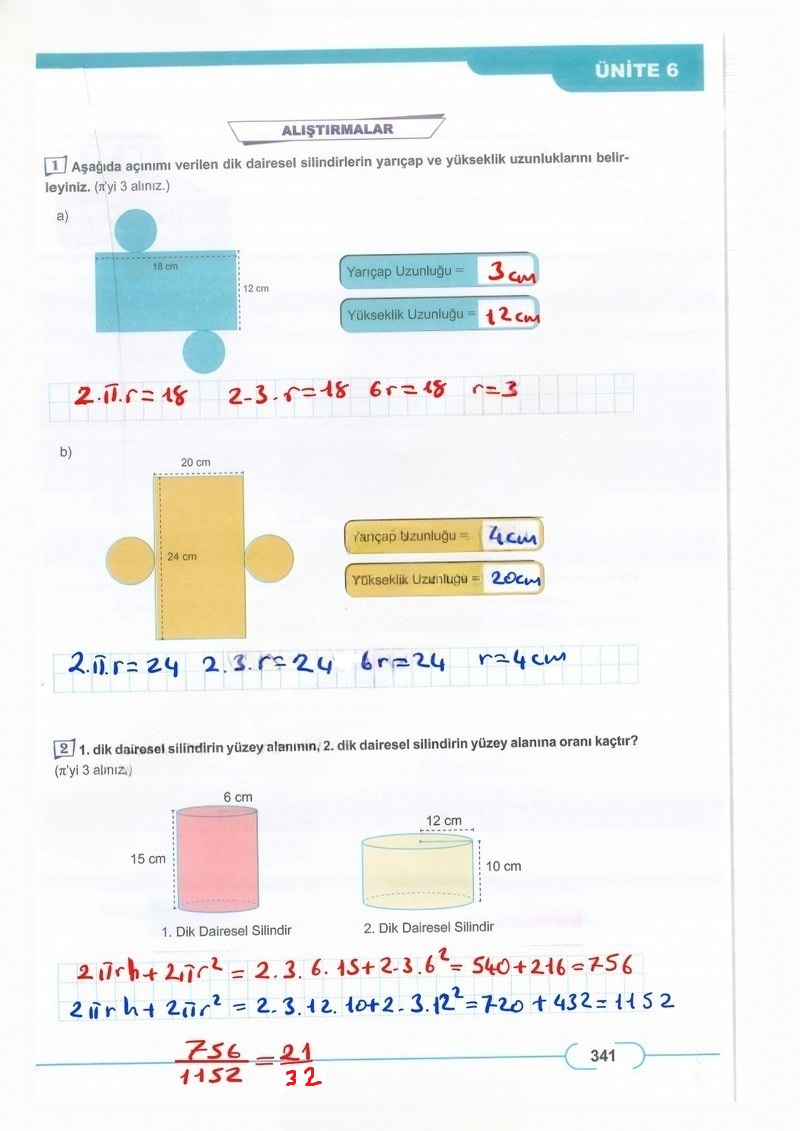 ÜNİTE 6
ALIŞTIRMALAR
1 Aşağıda açınımı verilen dik dairesel silindirlerin yarıçap ve yükseklik uzunluklarını belir-
leyiniz. (π'yi 3 alınız.)
a)
18 cm
12 cm
Yarıçap Uzunluğu = 3 cm
Yükseklik Uzunluğu = 12 cm
2.π.r = 18 2-3.r = 18 6r = 18 r = 3
b)
20 cm
24 cm
Yarıçap Uzunluğu = 4cm
Yükseklik Uzunluğu = 20cm
2.π.r = 24 2.3.r = 24 6r = 24 r = 4 cm
2 1. dik dairesel silindirin yüzey alanının, 2. dik dairesel silindirin yüzey alanına oranı kaçtır?
(π'yi 3 alınız.)
6 cm
15 cm
1. Dik Dairesel Silindir
12 cm
10 cm
2. Dik Dairesel Silindir
2πrh + 2πr² = 2.3.6.15 + 2-3.6² = 540 + 216 = 756
2πrh + 2πr² = 2.3.12.10 + 2.3.12² = 720 + 432 = 1152
756/1152 = 21/32
341